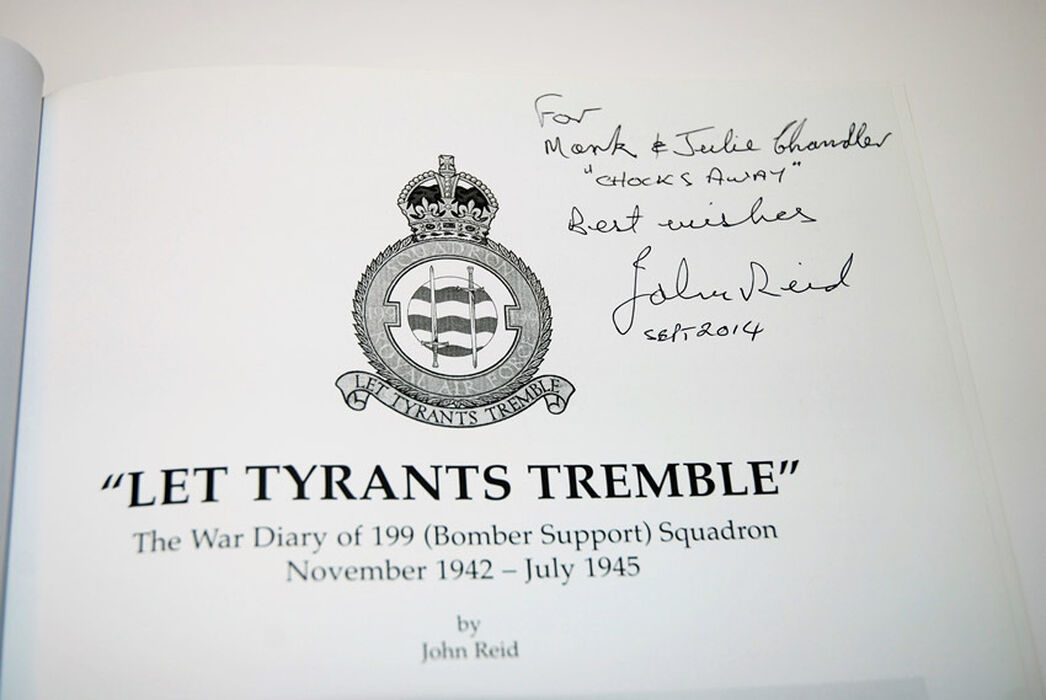 For
Mark & Julie Chandler
"CHOCKS AWAY"
Best wishes
John Reid
SEPT 2014
SQUADRON
199
ROYAL AIR FORCE
LET TYRANTS TREMBLE
“LET TYRANTS TREMBLE”
The War Diary of 199 (Bomber Support) Squadron
November 1942 – July 1945
by
John Reid